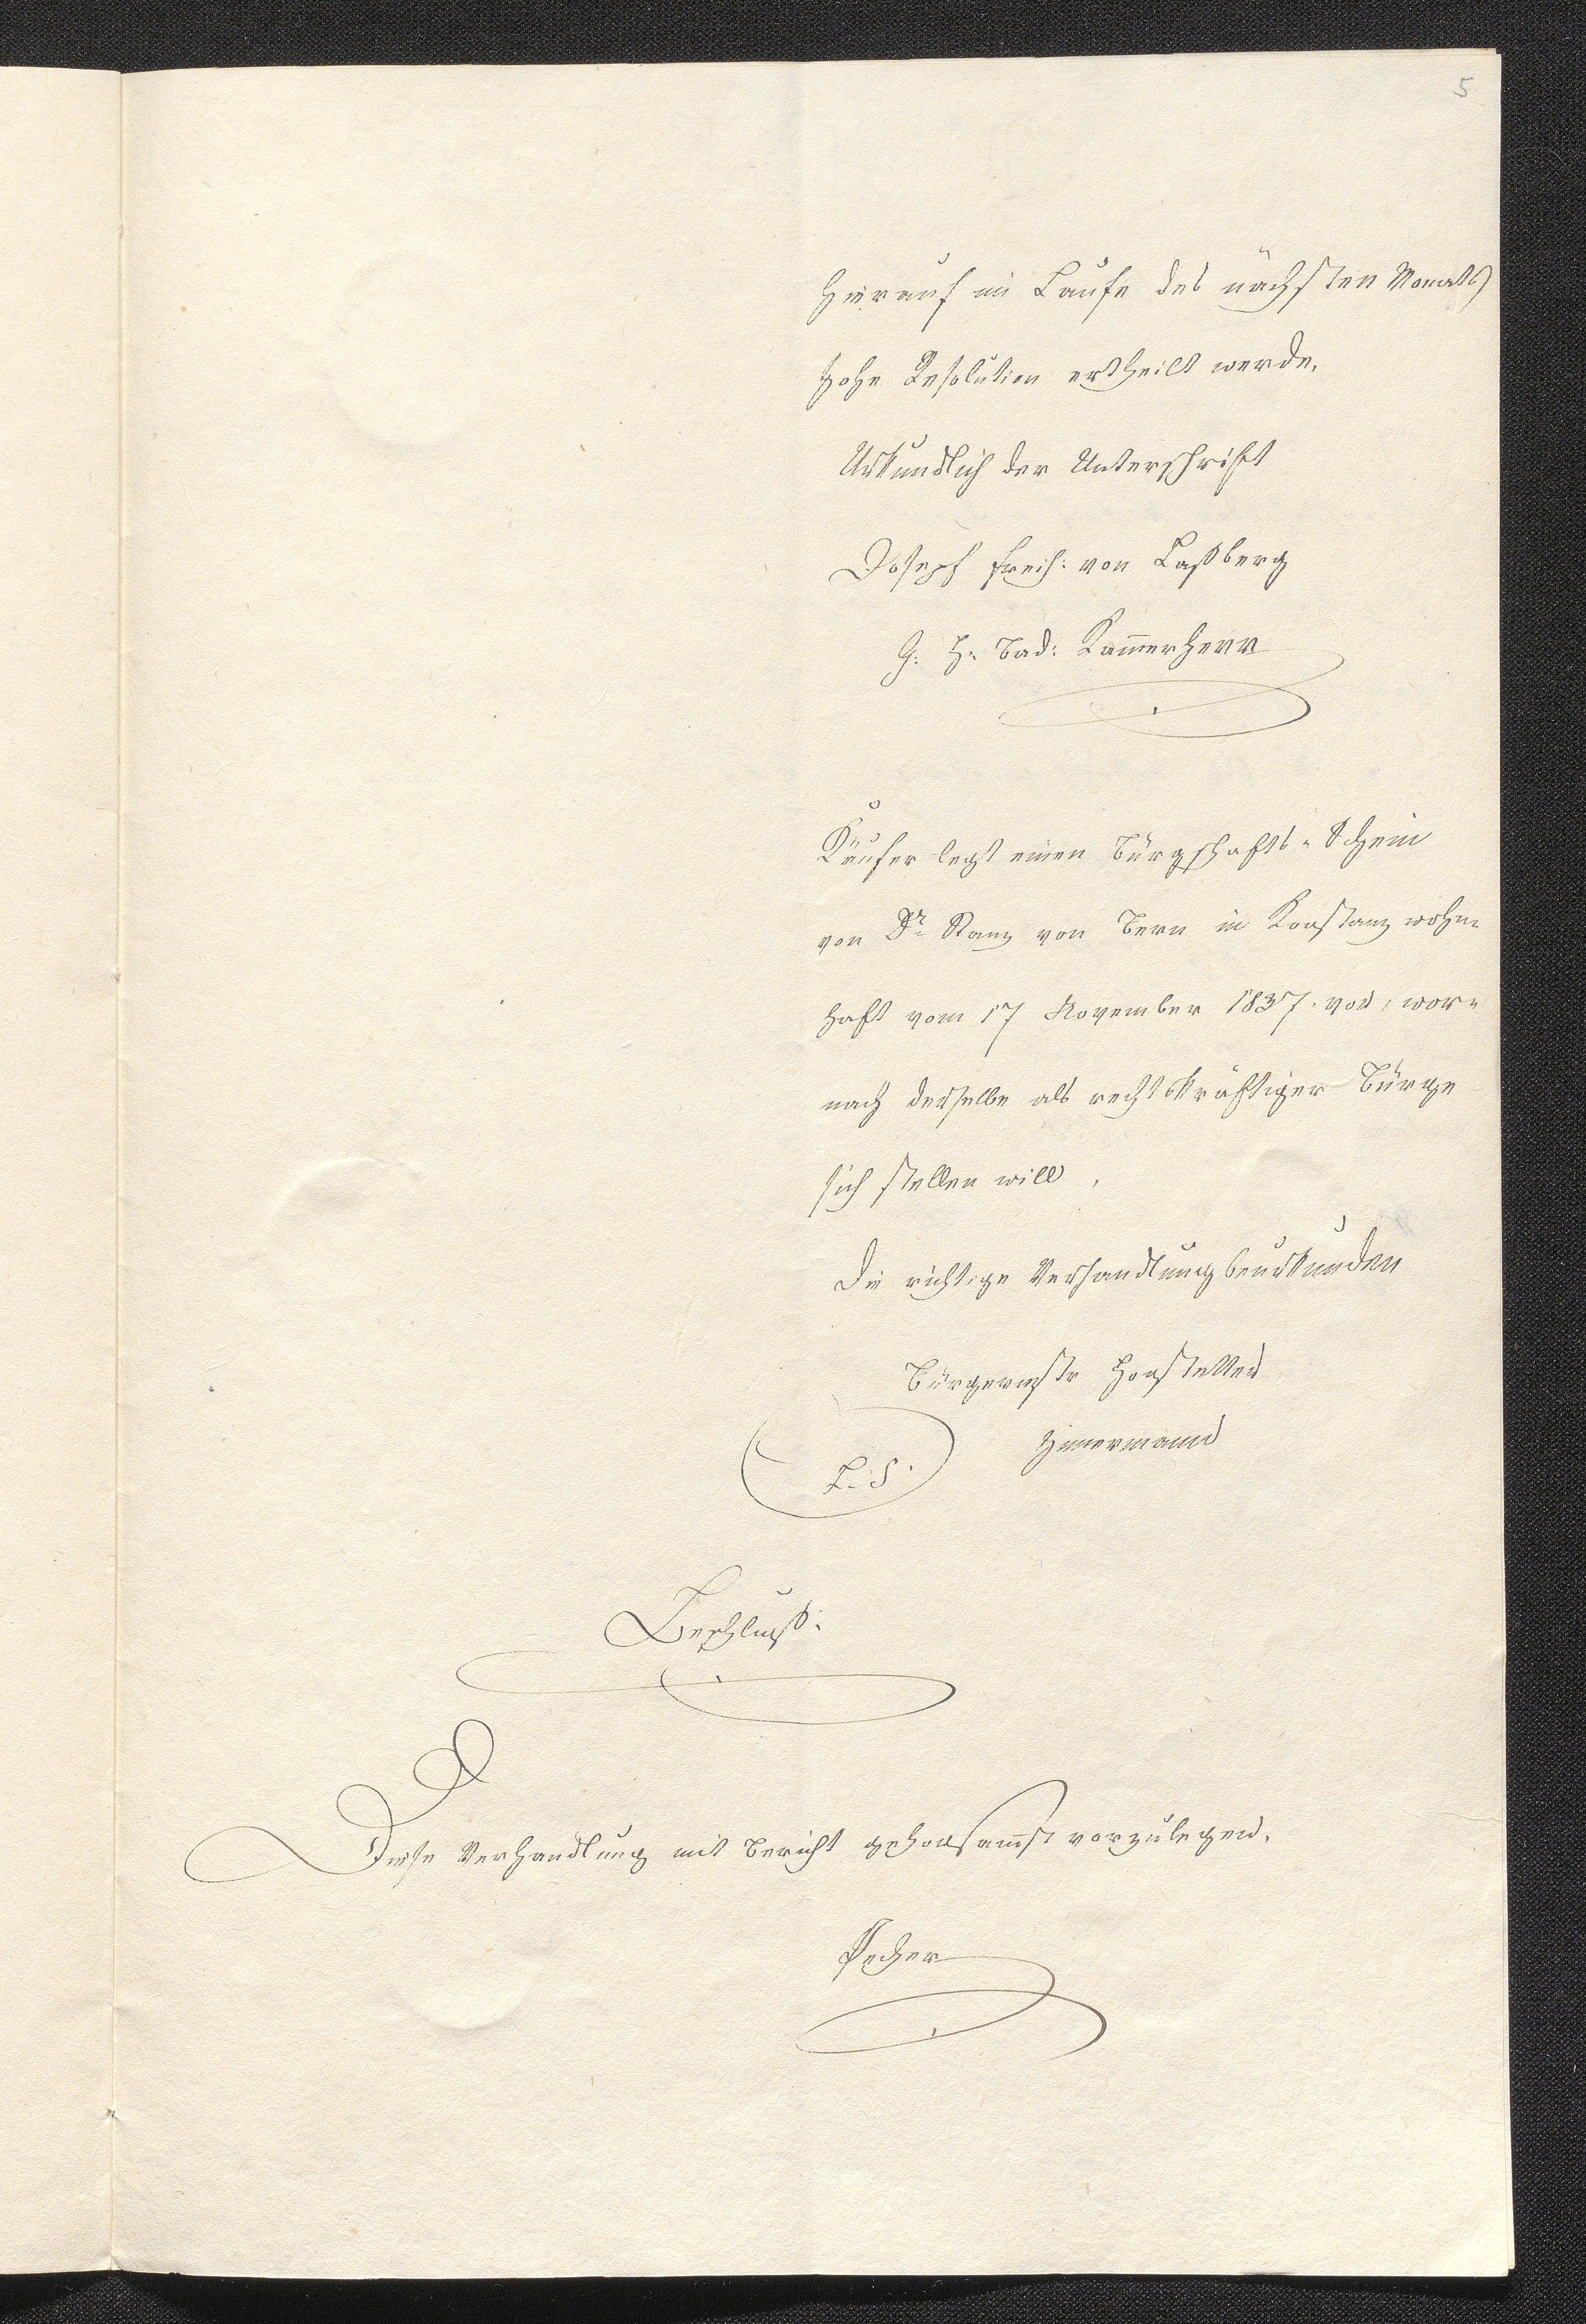 5
hierauf im Laufe des nächsten Monats
hohe Resolution ertheilt werde.
Urkundlich der Unterschrift
Joseph Freih: von Laßberg
G: H: Bad: Kam̅erherr
Käufer legt einen Bürgschafts-Schein
von Dr. Kanz von Bern in Konstanz wohn-
haft vom 17 November 1837. vor, wor-
nach derselbe als rechtskräftiger Bürge
sich stellen will.
Die richtige Verhandlung beurkunden
Bürgermstr
Zimermann
L. S.
Beschluß.
Diese Verhandlung mit Bericht gehorsam̅st vorzulegen.